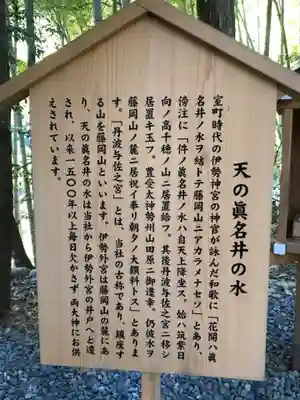 天の眞名井の水
室町時代の伊勢神宮の神官が詠んだ和歌に「花開ハ眞
名井ノ水ヲ結トテ藤岡山ニアカラメナセソ」とあり、
傍注に「件ノ眞名井ノ水ハ自天上降坐ス。始ハ筑紫日
向ノ高千穂ノ山ニ居置給フ。其後丹波与佐之宮ニ移シ
居置キ玉フ。豊受太神勢州山田原ニ御遷幸。仍彼水ヲ
藤岡山ノ麓ニ居祝イ奉リ朝夕ノ大饌料トス」とありま
す。「丹波与佐之宮」とは、当社の古称であり、鎮座す
る山を藤岡山といいます。伊勢外宮は藤岡山の麓にあ
り、天の眞名井の水は当社から伊勢外宮の井戸へと遷
され、以来一五〇〇年以上毎日欠かさず両大神にお供
えされています。